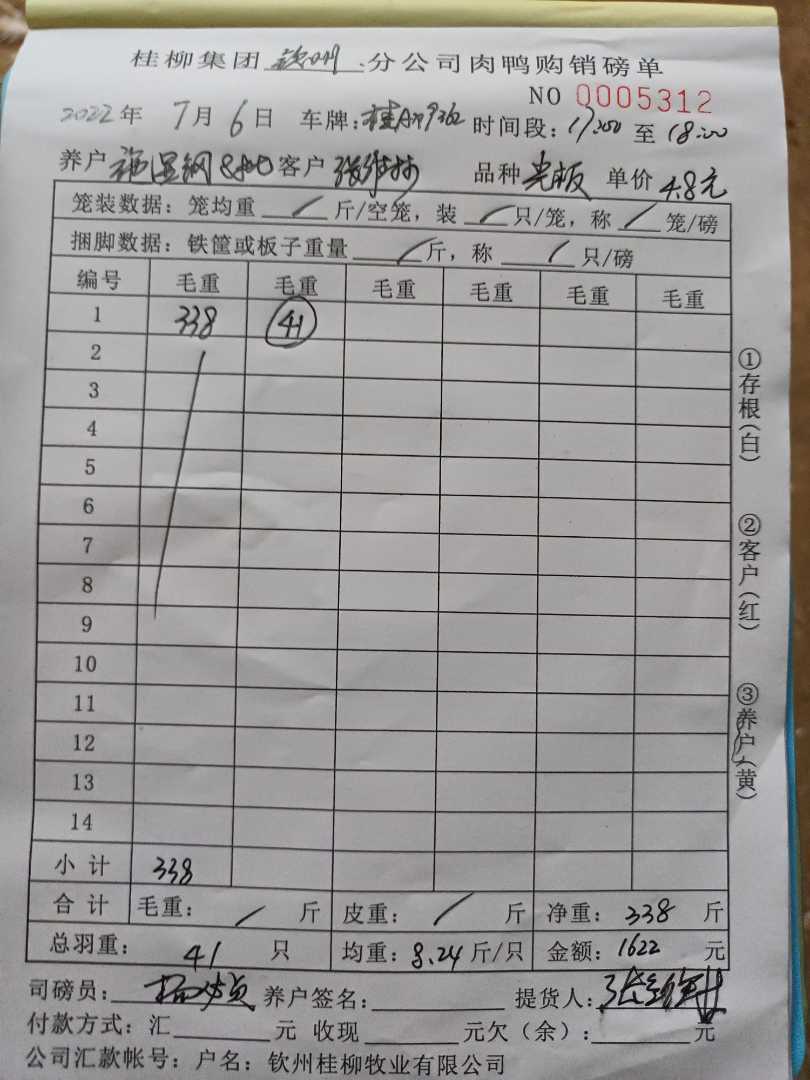 桂柳集团 钦州 分公司肉鸭购销磅单
NO 0005312
2022年 7月 6日 车牌: 时间段:17:00 至 18:00
养户 客户 品种 光板 单价 4.8元
笼装数据: 笼均重 / 斤/空笼, 装 / 只/笼, 称 / 笼/磅
捆脚数据: 铁筐或板子重量 / 斤, 称 / 只/磅
编号 毛重 毛重 毛重 毛重 毛重 毛重
1 338 41
2
3
4
5
6
7
8
9
10
11
12
13
14
小计 338
合计 毛重: / 斤 皮重: / 斤 净重: 338 斤
总羽重: 41 只 均重: 8.24 斤/只 金额: 1622 元
司磅员: 养户签名: 提货人:
付款方式: 汇 元 收现 元欠(余): 元
公司汇款帐号: 户名: 钦州桂柳牧业有限公司
①存根(白)
②客户(红)
③养户(黄)